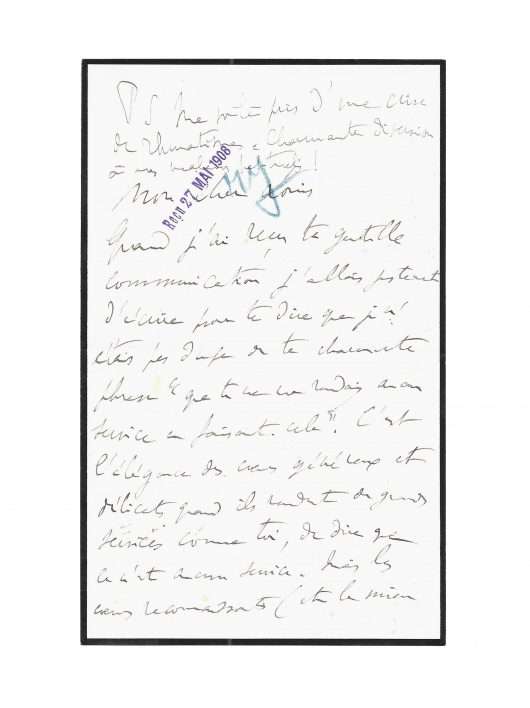 PS Me voilà pris d'une crise
de Rhumatisme. Charmante diversion
à mes !
Mon cher Louis
Reçu 27 MAI 1908
Quand j'ai reçu ta gentille
communication j'allais justement
t'écrire pour te dire que je n'
étais pas dupe de ta charmante
phrase "que tu ne me rendais aucun
service en faisant cela". C'est
l'élégance des cœurs généreux et
délicats quand ils rendent de grands
services comme toi, de dire que
ce n'est aucun service. Mais les
cœurs reconnaissants (et le mien